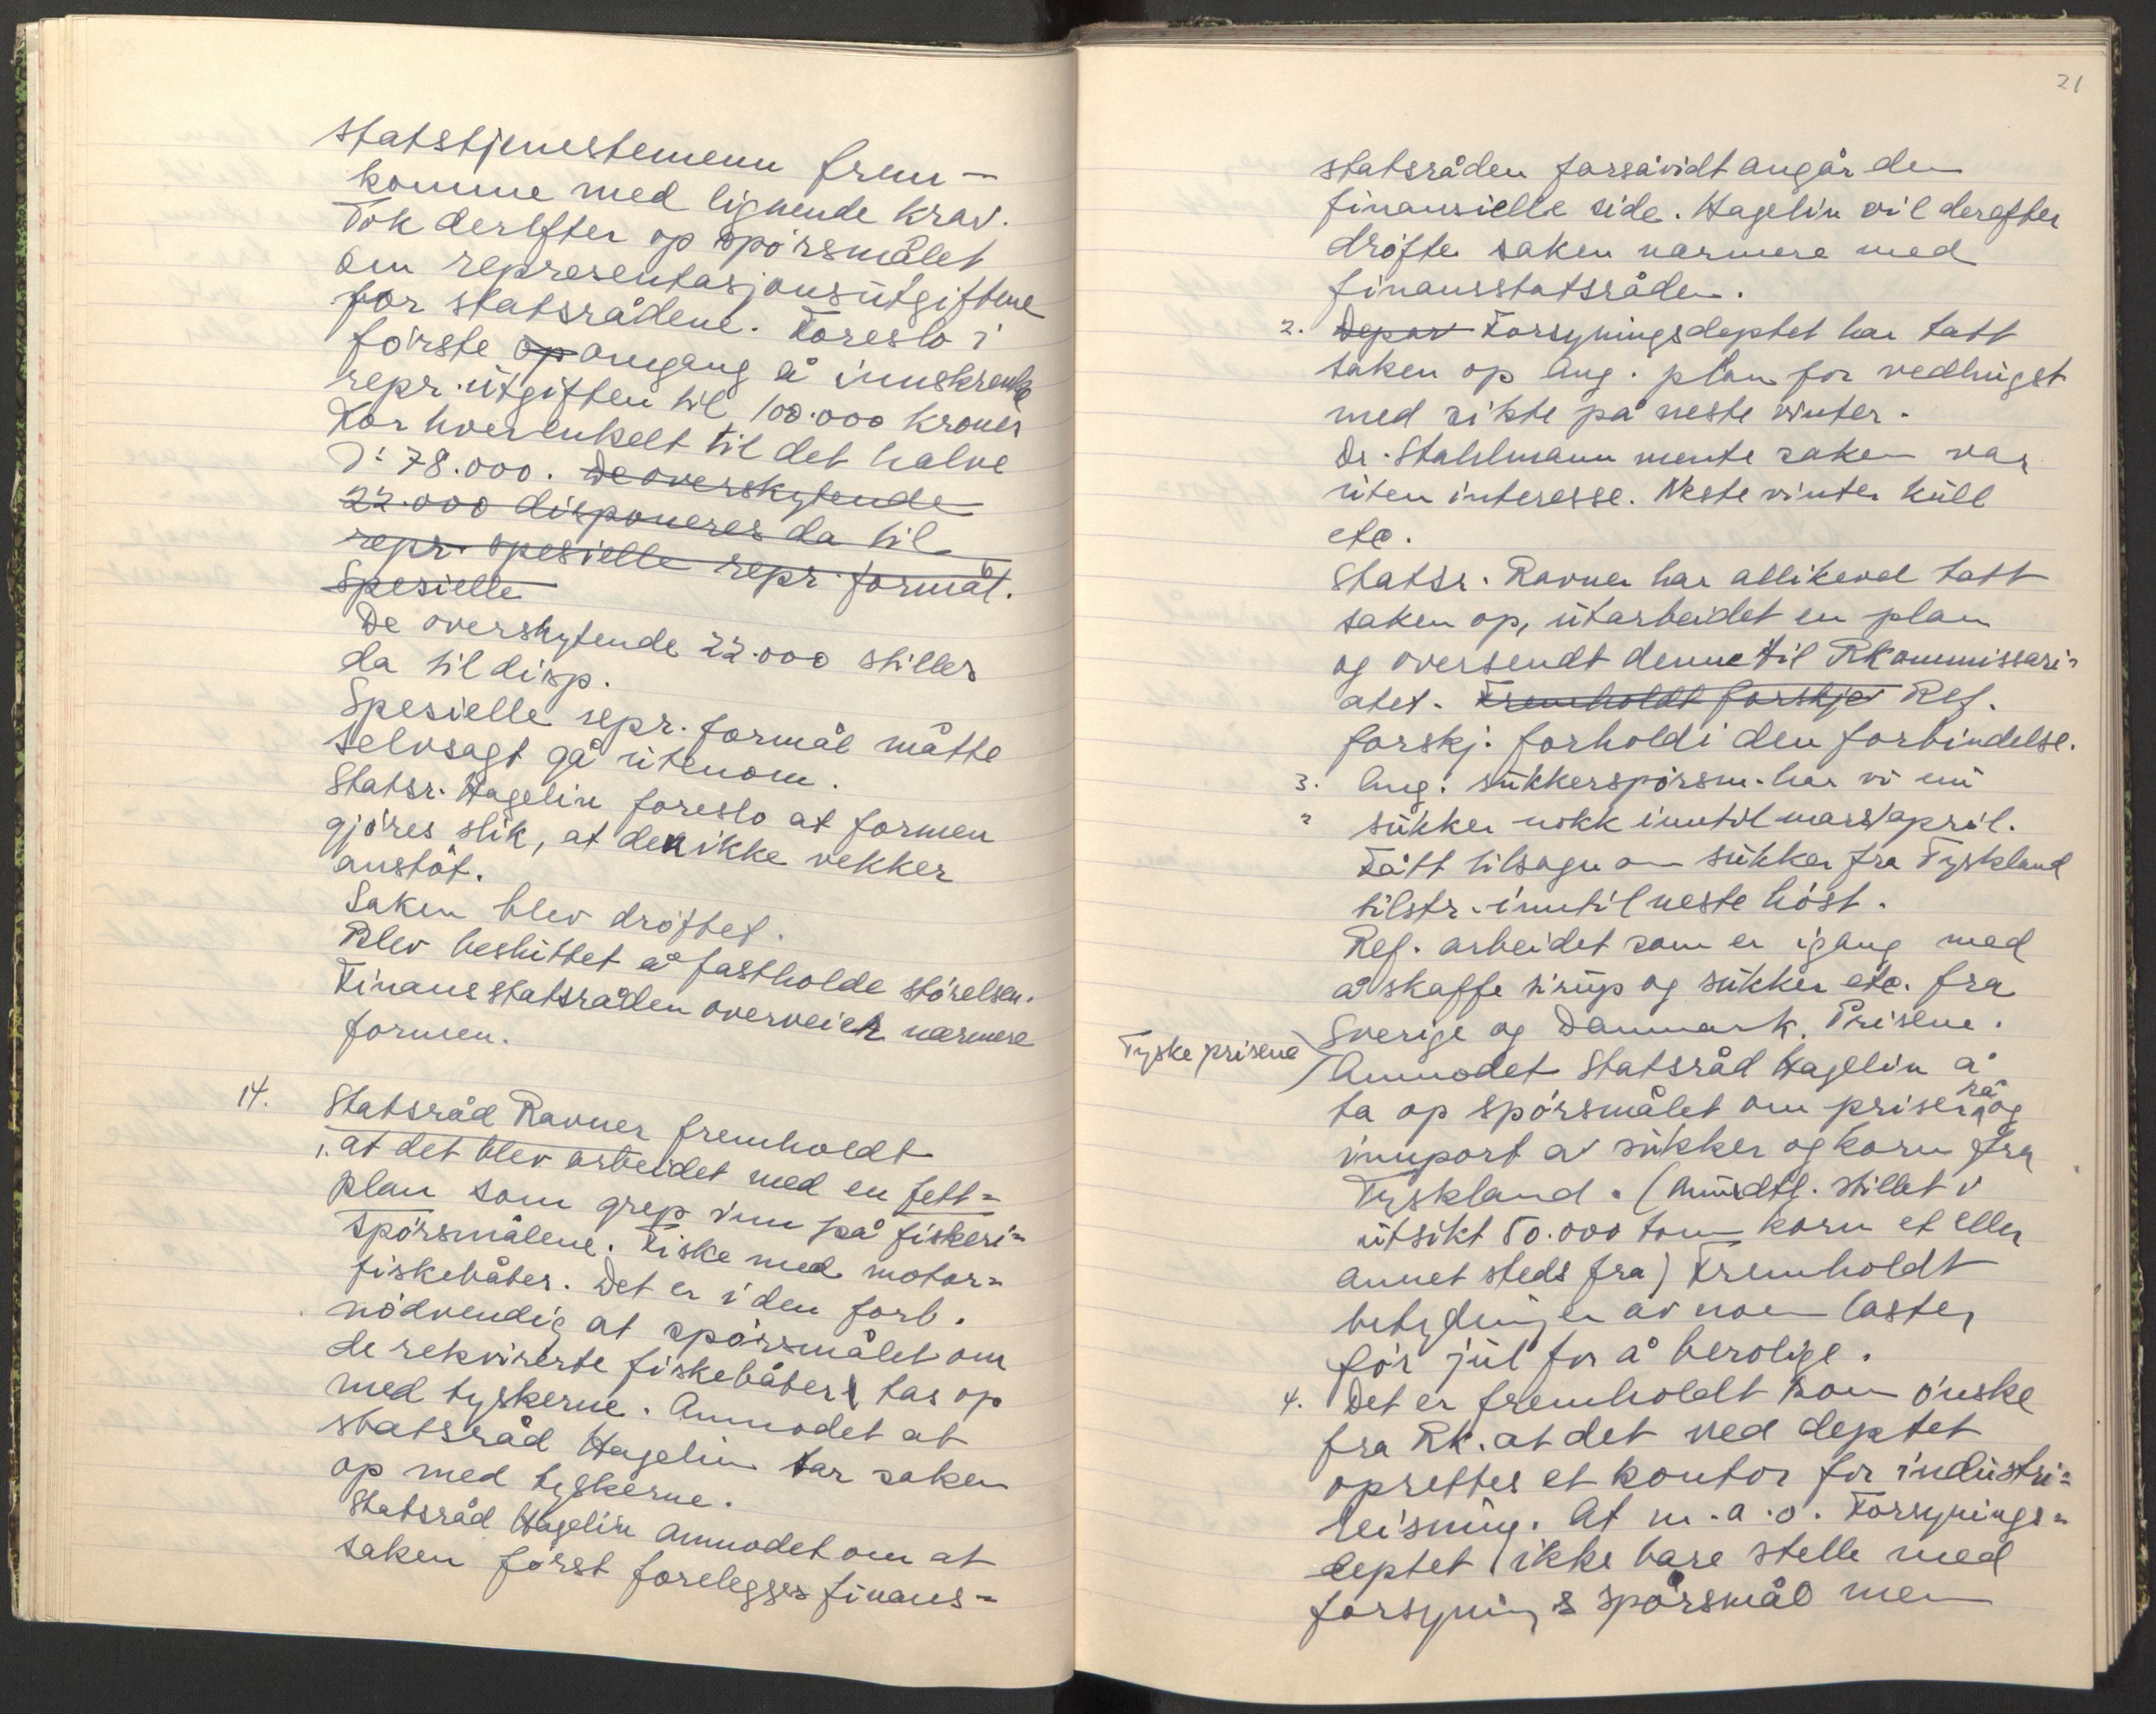 statstjenestemenn frem-
komme med lignende krav.
Tok derefter op spörsmålet
om representasjonsutgiftene
for statsrådene. Foreslo i
förste op omgang å innskrenke
repr. utgiften til 100.000 kroner
for hver enkelt til det halve
ɔ: 78.000. De overskytende
22.000 disponeres da til
repr. spesielle repr. formål.
Spesielle
De overskytende 22.000 stilles
da til disp.
Spesielle repr. formål måtte
selvsagt gå utenom.
Statsr. Hagelin foreslo at formen
gjöres slik, at den ikke vekker
anstöt.
Saken blev dröftet.
Blev besluttet å fastholde störelsen.
Finansstatsråden overveier nærmere
formen.
14. Statsråd Ravner fremholdt
1. at det blev arbeidet med en fett=
plan som grep inn på fiskeri=
spörsmålene. Fiske med motor=
fiskebåter. Det er i den forb.
nödvendig at spörsmålet om
de rekvirerte fiskebåter tas op
med tyskerne. Anmodet at
statsråd Hagelin tar saken
op med tyskerne.
Statsråd Hagelin anmodet om at
saken först forelegges finans=
21
statsråden forsåvidt angår den
finansielle side. Hagelin vil derefter
dröfte saken nærmere med
finansstatsråden.
2. Depar Forsyningsdeptet har tatt
saken op ang. plan for vedhugst
med sikte på neste vinter.
Dr. Stahlmann mente saken var
uten interesse. Neste vinter kull
etc.
Statsr. Ravner har allikevel tatt
saken op, utarbeidet en plan
og oversendt denne til Rkommissari=
atet. Fremholdt forskje Ref.
forskj. forhold i den forbindelse.
3. Ang. sukkerspörsm. har vi nu
sukker nokk inntil mars/april.
Fått tilsagn om sukker fra Tyskland
tilstr. inntil neste höst.
Ref. arbeidet som er igang med
å skaffe sirup og sukker etc. fra
Sverige og Danmark. Prisene.
Tyske prisene
Anmodet Statsråd Hagelin å
ta op spörsmålet om priser på og
import av sukker og korn fra
Tyskland. (Mundtl. stillet i
utsikt 50.000 tonn korn et eller
annet steds fra) Fremholdt
betydningen av noen laster
för jul for å berolige.
4. Det er fremholdt som önske
fra Rk. at det ved deptet
oprettes et kontor for industri=
reisning. At m.a.o. Forsynings=
deptet ikke bare stelle med
forsyningsspörsmål men